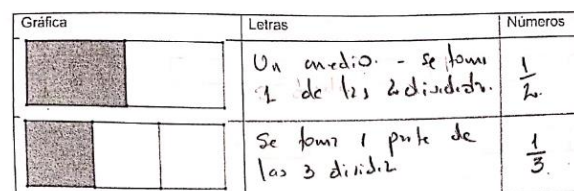 Gráfica Letras Números
Un medio. - se toma
1 de las 2 dividida. 1/2.
Se toma 1 parte de
las 3 dividida 1/3.